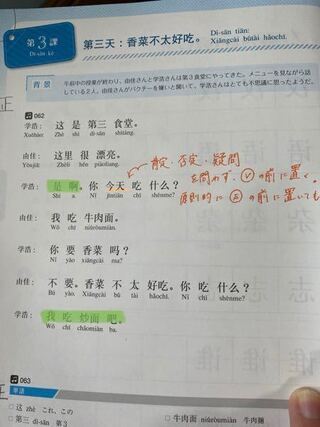 第3課
Dì-sān kè
Dì-sān tiān:
第三天：香菜不太好吃。
Xiāngcài bútài hǎochī.
背景
午前中の授業が終わり、由佳さんと学浩さんは第3食堂にやってきた。メニューを見ながら話
している2人。由佳さんがパクチーを嫌いと聞いて、学浩さんはとても不思議に思ったようだ。
062
学浩： 这 是 第三 食堂。
Zhè shì dì-sān shítáng.
由佳： 这里 很 漂亮。
Yóujiā: Zhèlǐ hěn piàoliang.
肯定・否定・疑問
を問わず、Ⓥの前に置く。
学浩： 是 啊。你 今天 吃 什么？
Shì a. Nǐ jīntiān chī shénme?
原則的に Ⓢ の前に置いても
由佳： 我 吃 牛肉面。
Wǒ chī niúròumiàn.
学浩： 你 要 香菜 吗？
Nǐ yào xiāngcài ma?
由佳： 不 要。香菜 不 太 好吃。你 吃 什么？
Bú yào. Xiāngcài bú tài hǎochī. Nǐ chī shénme?
学浩： 我 吃 炒面 吧。
Wǒ chī chǎomiàn ba.
063
単語
□ 这 zhè これ、この
□ 牛肉面 niúròumiàn 牛肉麺
□ 第三 dì-sān 第3